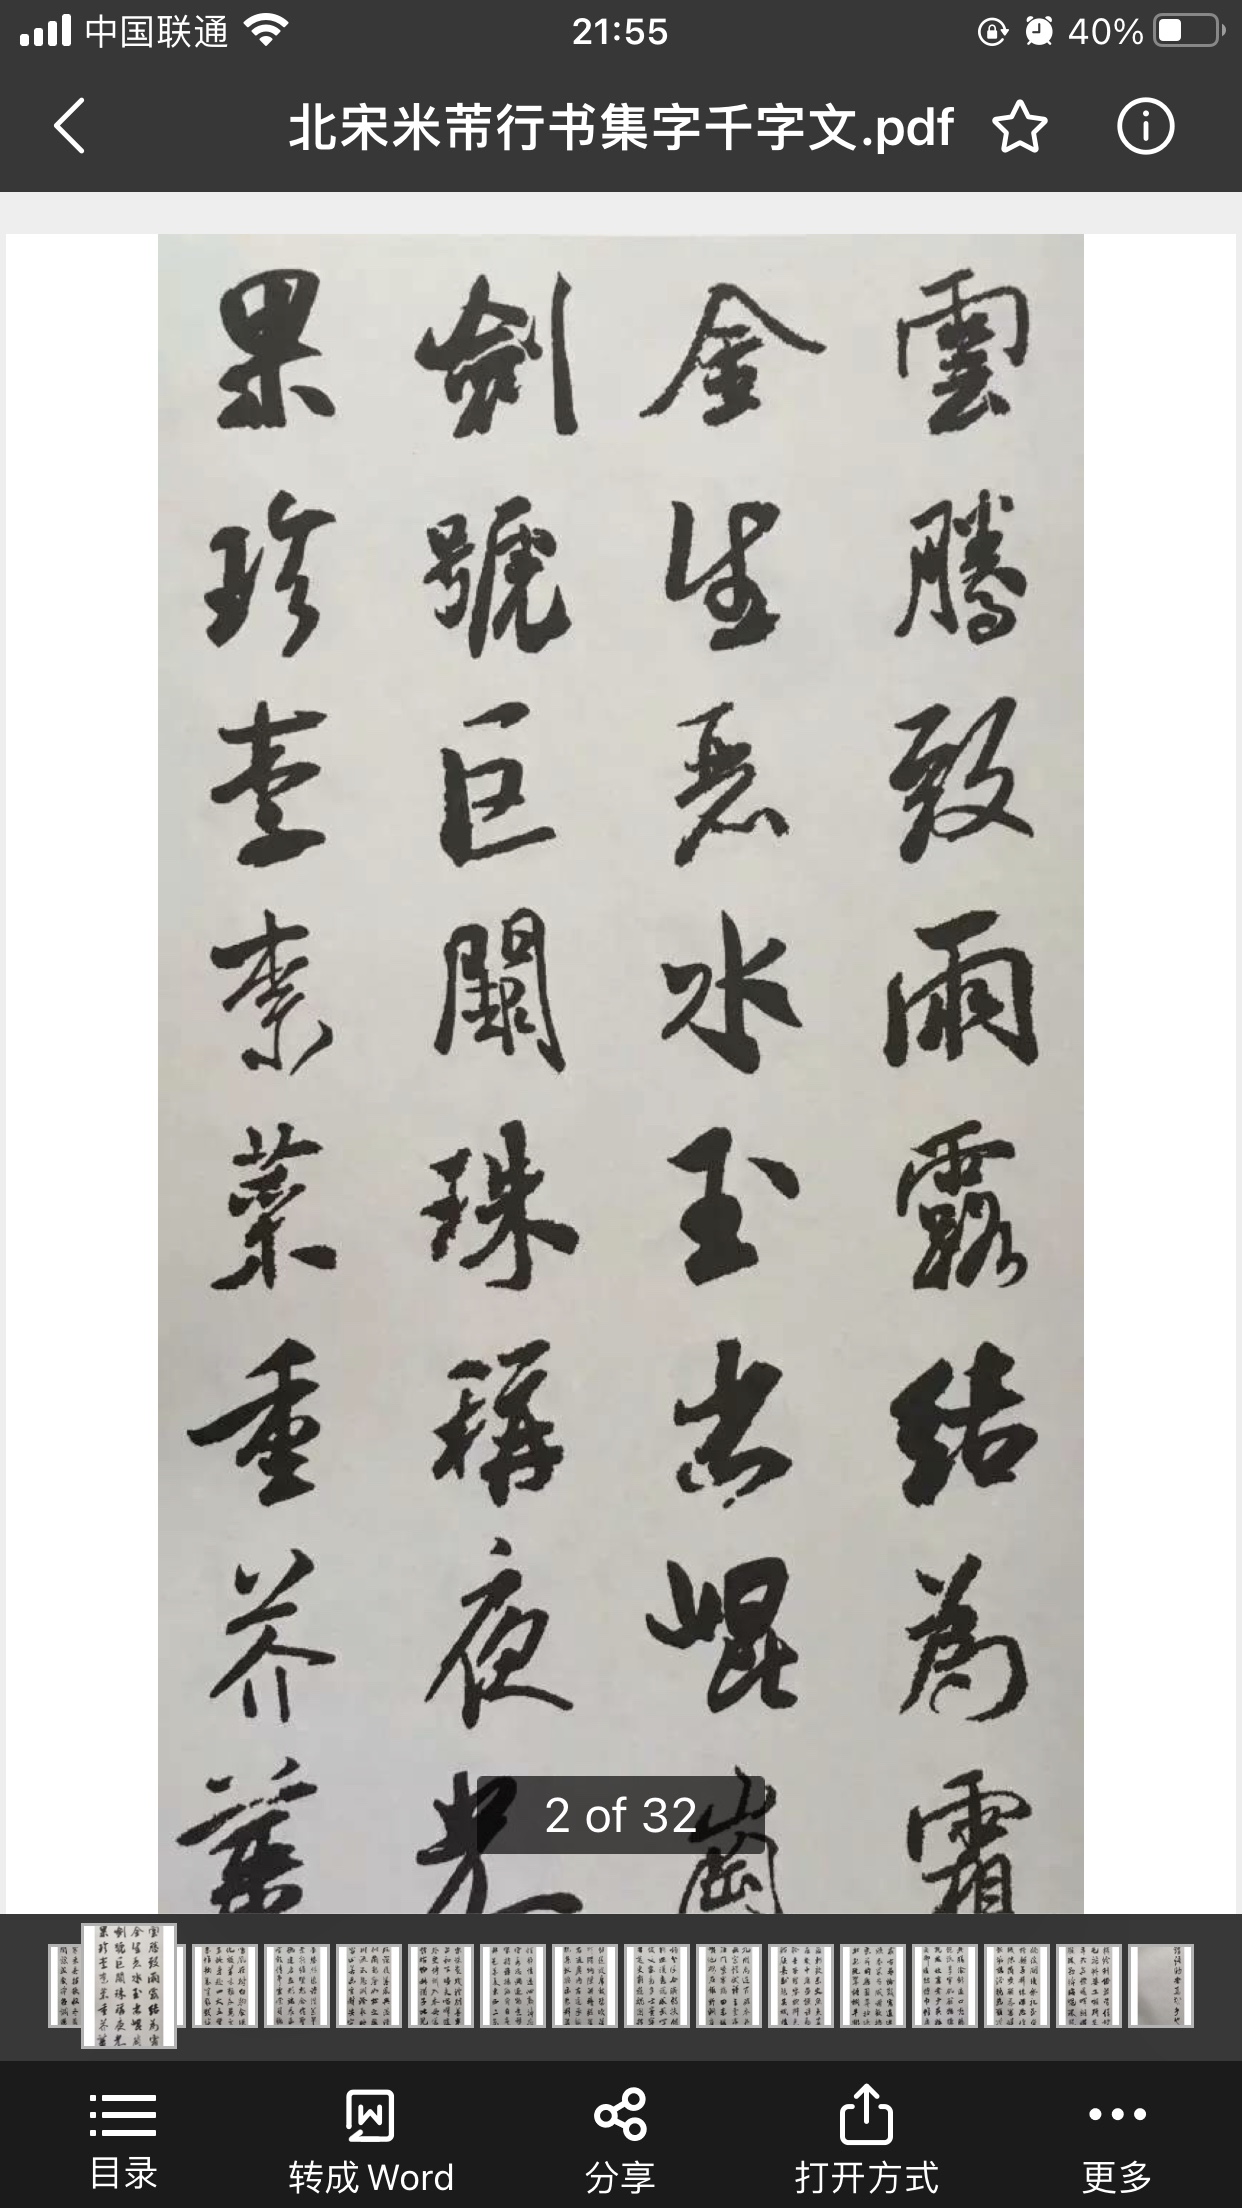 中国联通 21:55 40%
北宋米芾行书集字千字文.pdf
雲騰致雨露結為霜
金生麗水玉出崐崗
劍號巨闕珠稱夜光
果珍李柰菜重芥薑
2 of 32
目录 转成Word 分享 打开方式 更多